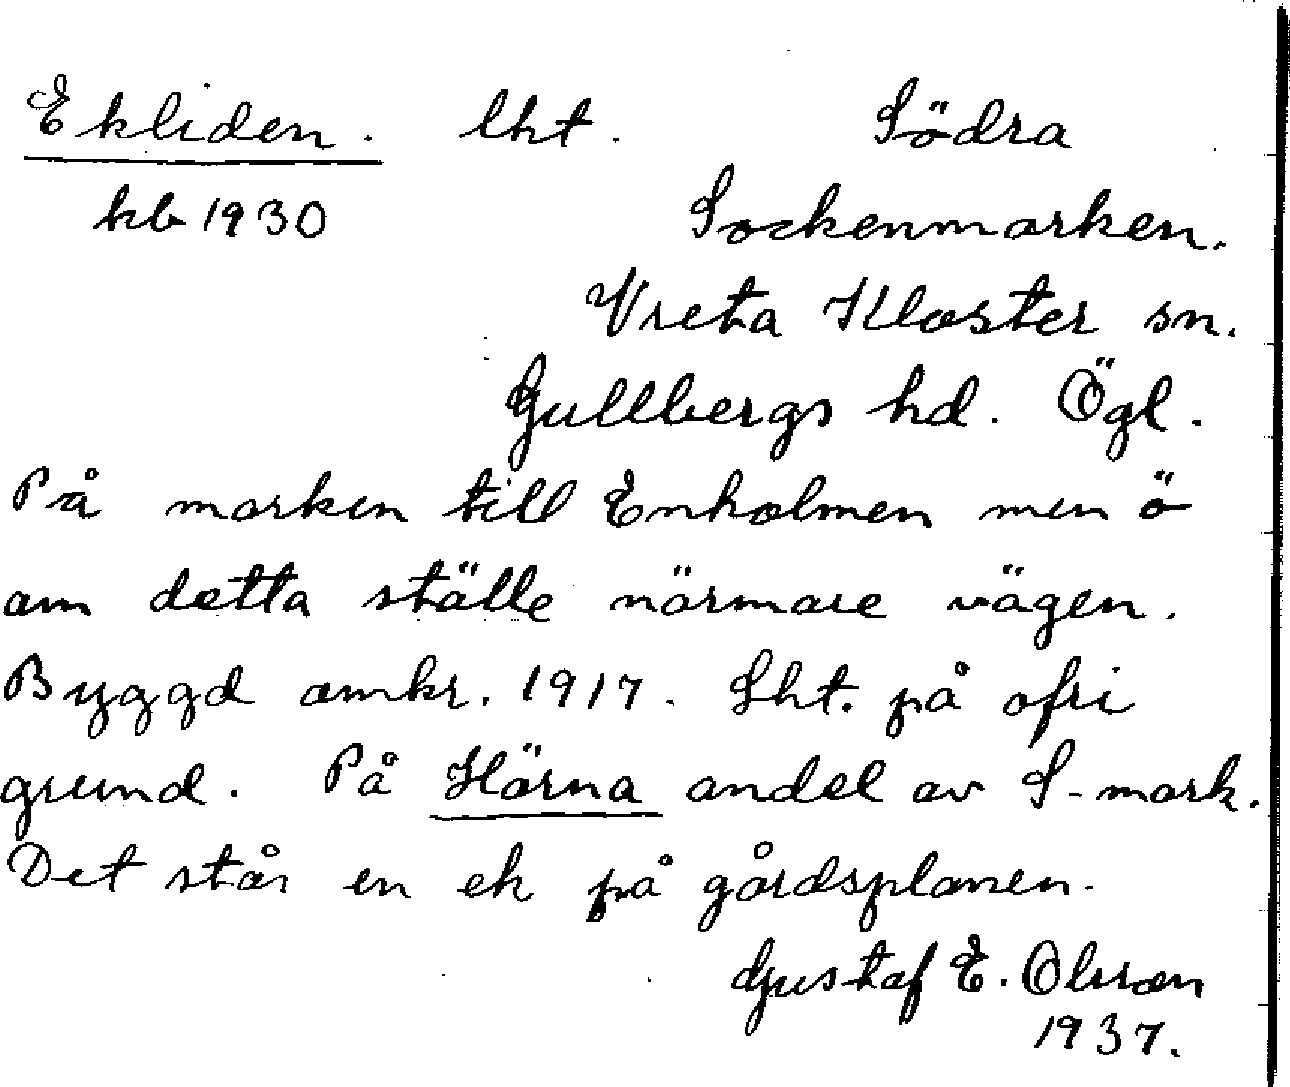 Ekliden. lht. Södra
kb 1930 Sockenmarken.
Vreta Kloster sn.
Gullbergs hd. Ögl.
På marken till Enholmen men ö
om detta ställe närmare vägen.
Byggd omkr. 1917. Lht. på ofri
grund. På Härna andel av S-mark.
Det står en ek på gårdsplanen.
Gustaf E. Olsson
1937.